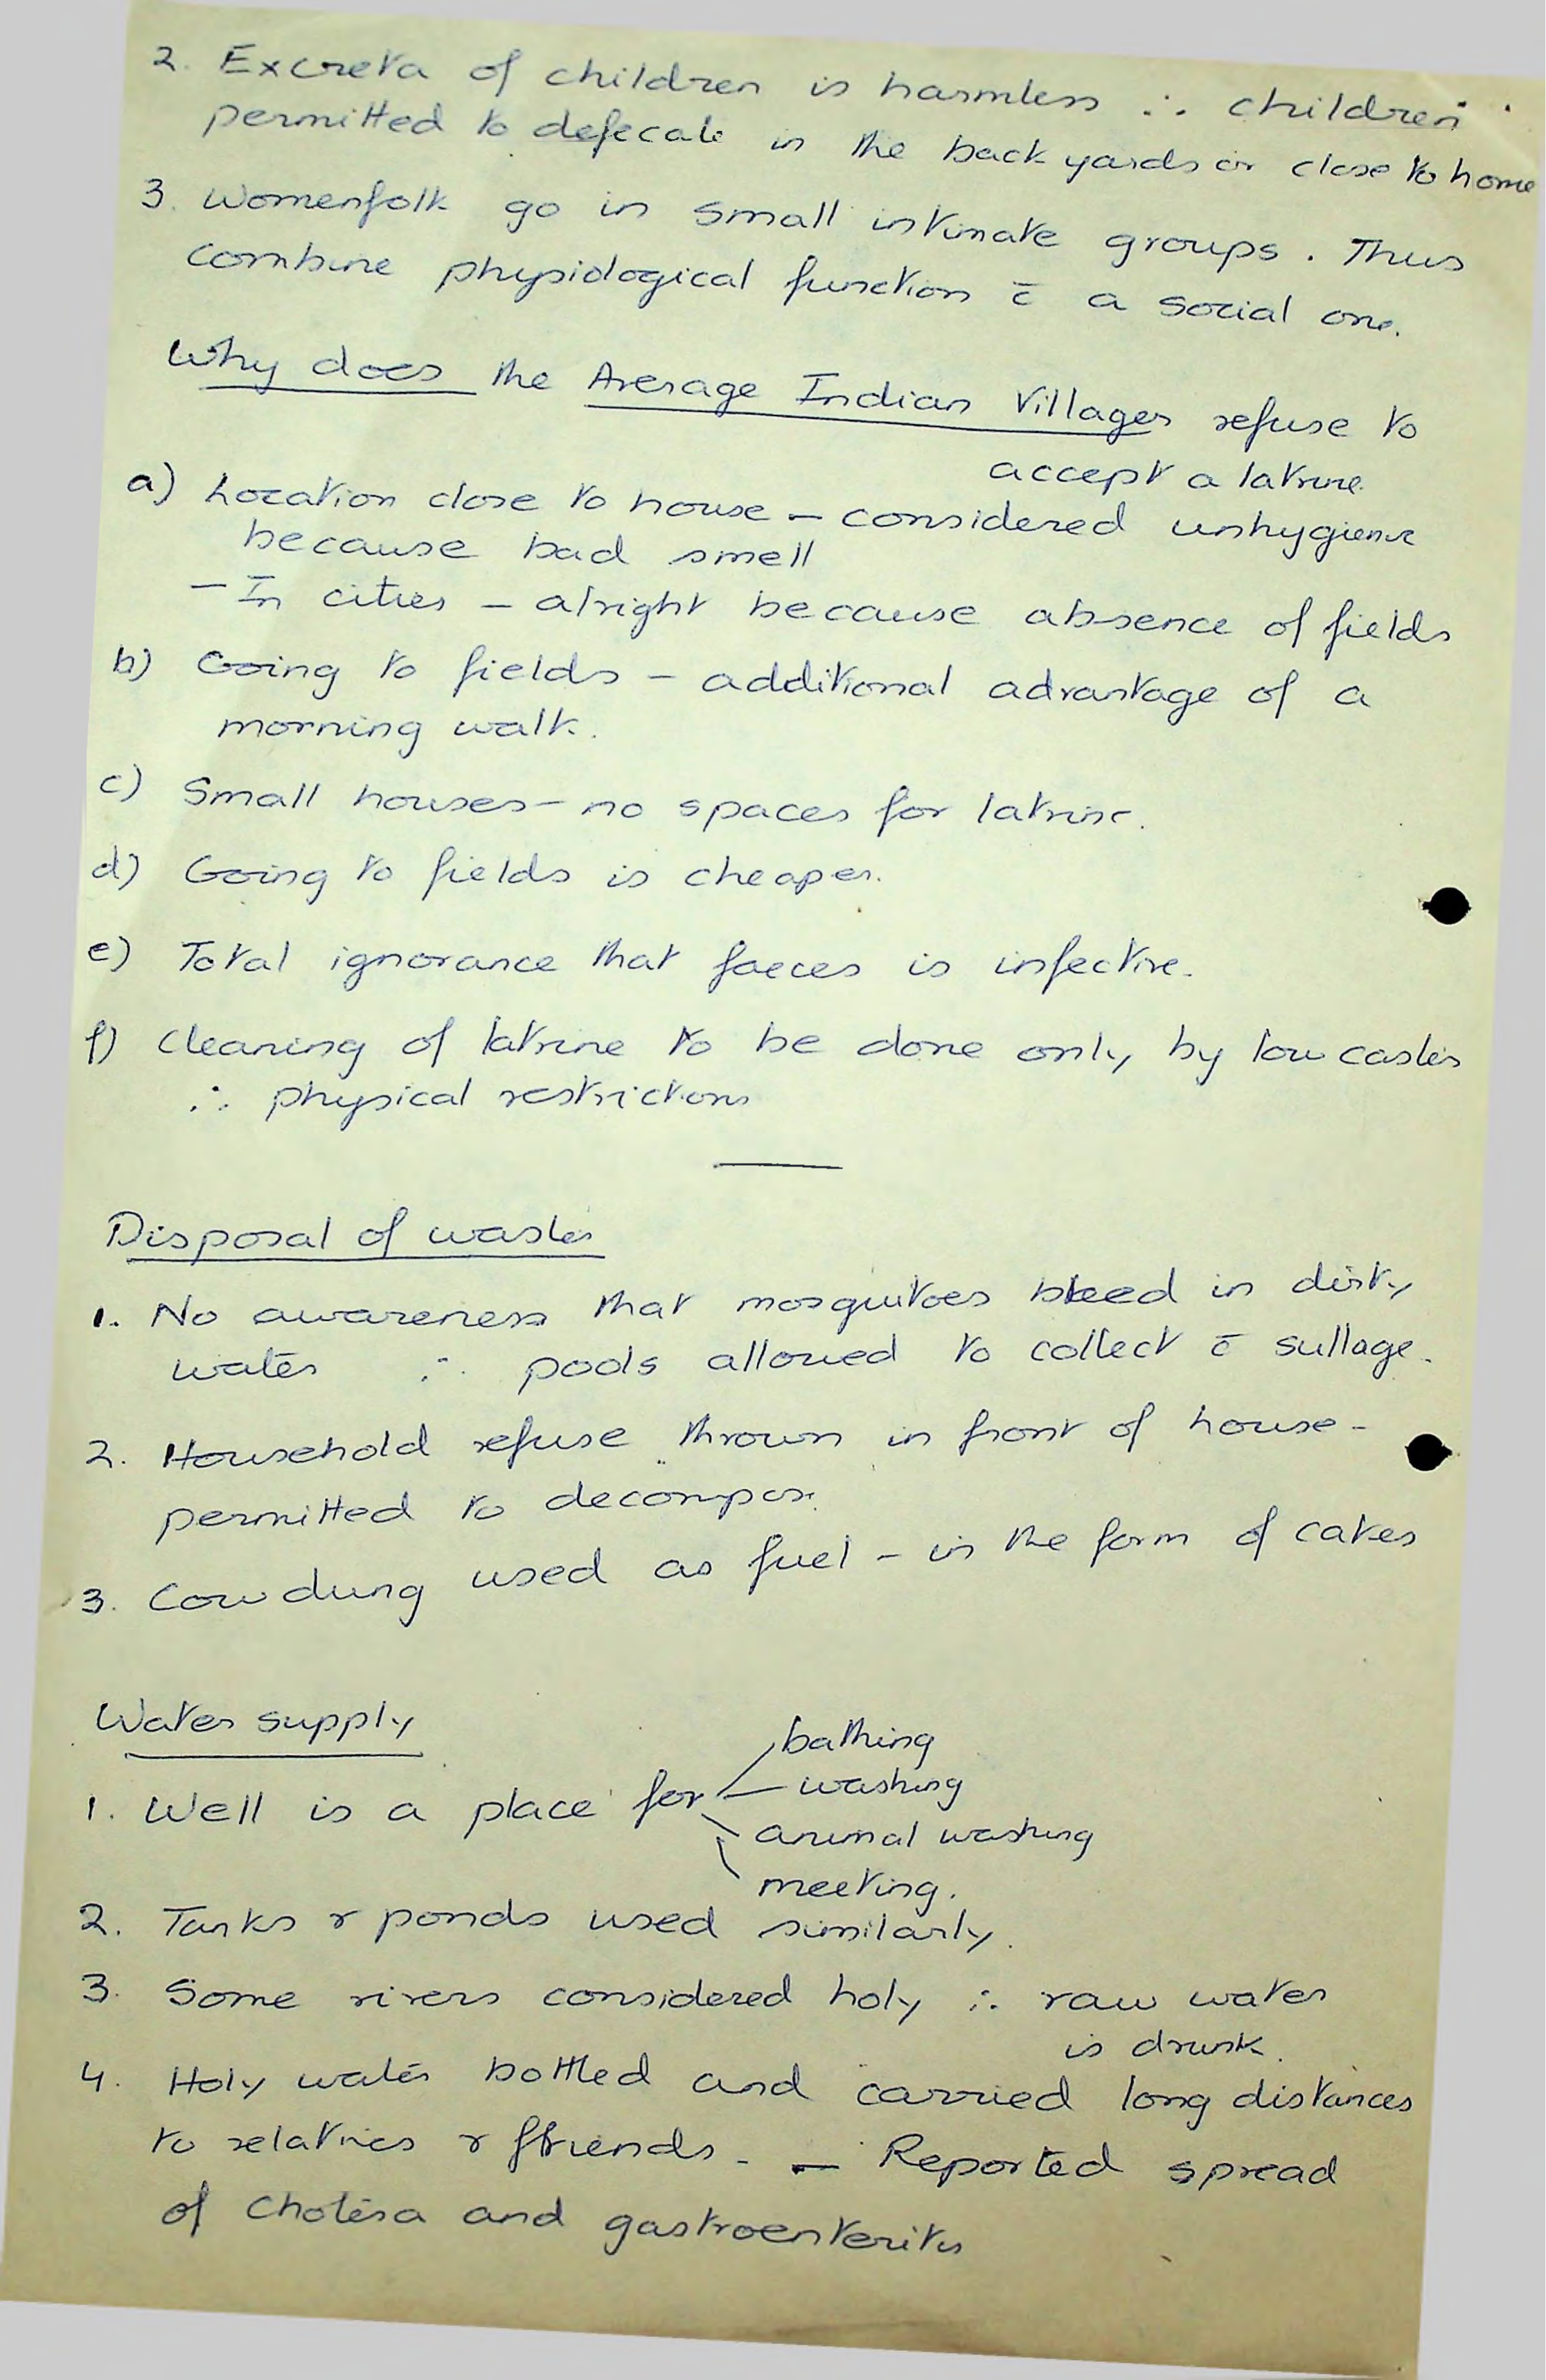 2. Excreta of children is harmless ∴ children
permitted to defecate in the back yards or close to home
3. Womenfolk go in small intimate groups. Thus
combine physiological function c̄ a social one.
Why does the Average Indian Villager refuse to
accept a latrine.
a) Location close to house – considered unhygienic
because bad smell
– In cities – alright because absence of fields
b) Going to fields – additional advantage of a
morning walk.
c) Small houses – no spaces for latrine.
d) Going to fields is cheaper.
e) Total ignorance that faeces is infective.
f) Cleaning of latrine to be done only by low castes
∴ physical restrictions
Disposal of wastes
1. No awareness that mosquitoes breed in dirty
water ∴ pools allowed to collect c̄ sullage.
2. Household refuse thrown in front of house –
permitted to decompose.
3. Cow dung used as fuel – in the form of cakes
Water supply
bathing
washing
1. Well is a place for
animal washing
meeting.
2. Tanks & ponds used similarly.
3. Some rivers considered holy ∴ raw water
is drunk.
4. Holy water bottled and carried long distances
to relatives & friends. – Reported spread
of cholera and gastroenteritis